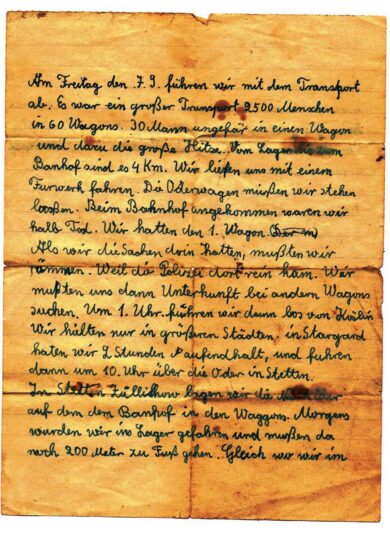 Am Freitag den 7.9. führen wir mit dem Transport
ab. Es war ein großer Transport 2500 Menschen
in 60 Wagons. 30 Mann ungefär in einen Wagon
und dazu die große Hitze. Vom Lager bis zum
Banhof sind es 4 Km. Wir ließen uns mit einem
Furwerk fahren. Die Oderwagen mußen wir stehen
laßen. Beim Bahnhof angekommen waren wir
halb Tod. Wir hatten den 1. Wagon. Der m
Als wir die Sachen drin hatten, mußten wir
räumen. Weil die Polizei dort rein kam. Wir
mußten uns dann Unterkunft bei andern Wagons
suchen. Um 1. Uhr führen wir dann los von Köslin
Wir hielten nur in größeren Städten. in Stargard
haten wir 2 Stunden Aufendhalt, und fuhren
dann um 10. Uhr über die Oder in Stettin.
In Stettin Züllchow lagen wir die
auf dem dem Banhof in den Waggons. Morgens
wurden wir ins Lager gefahren und mußen da
noch 200 Meter zu Fuß gehen. Gleich wo wir im